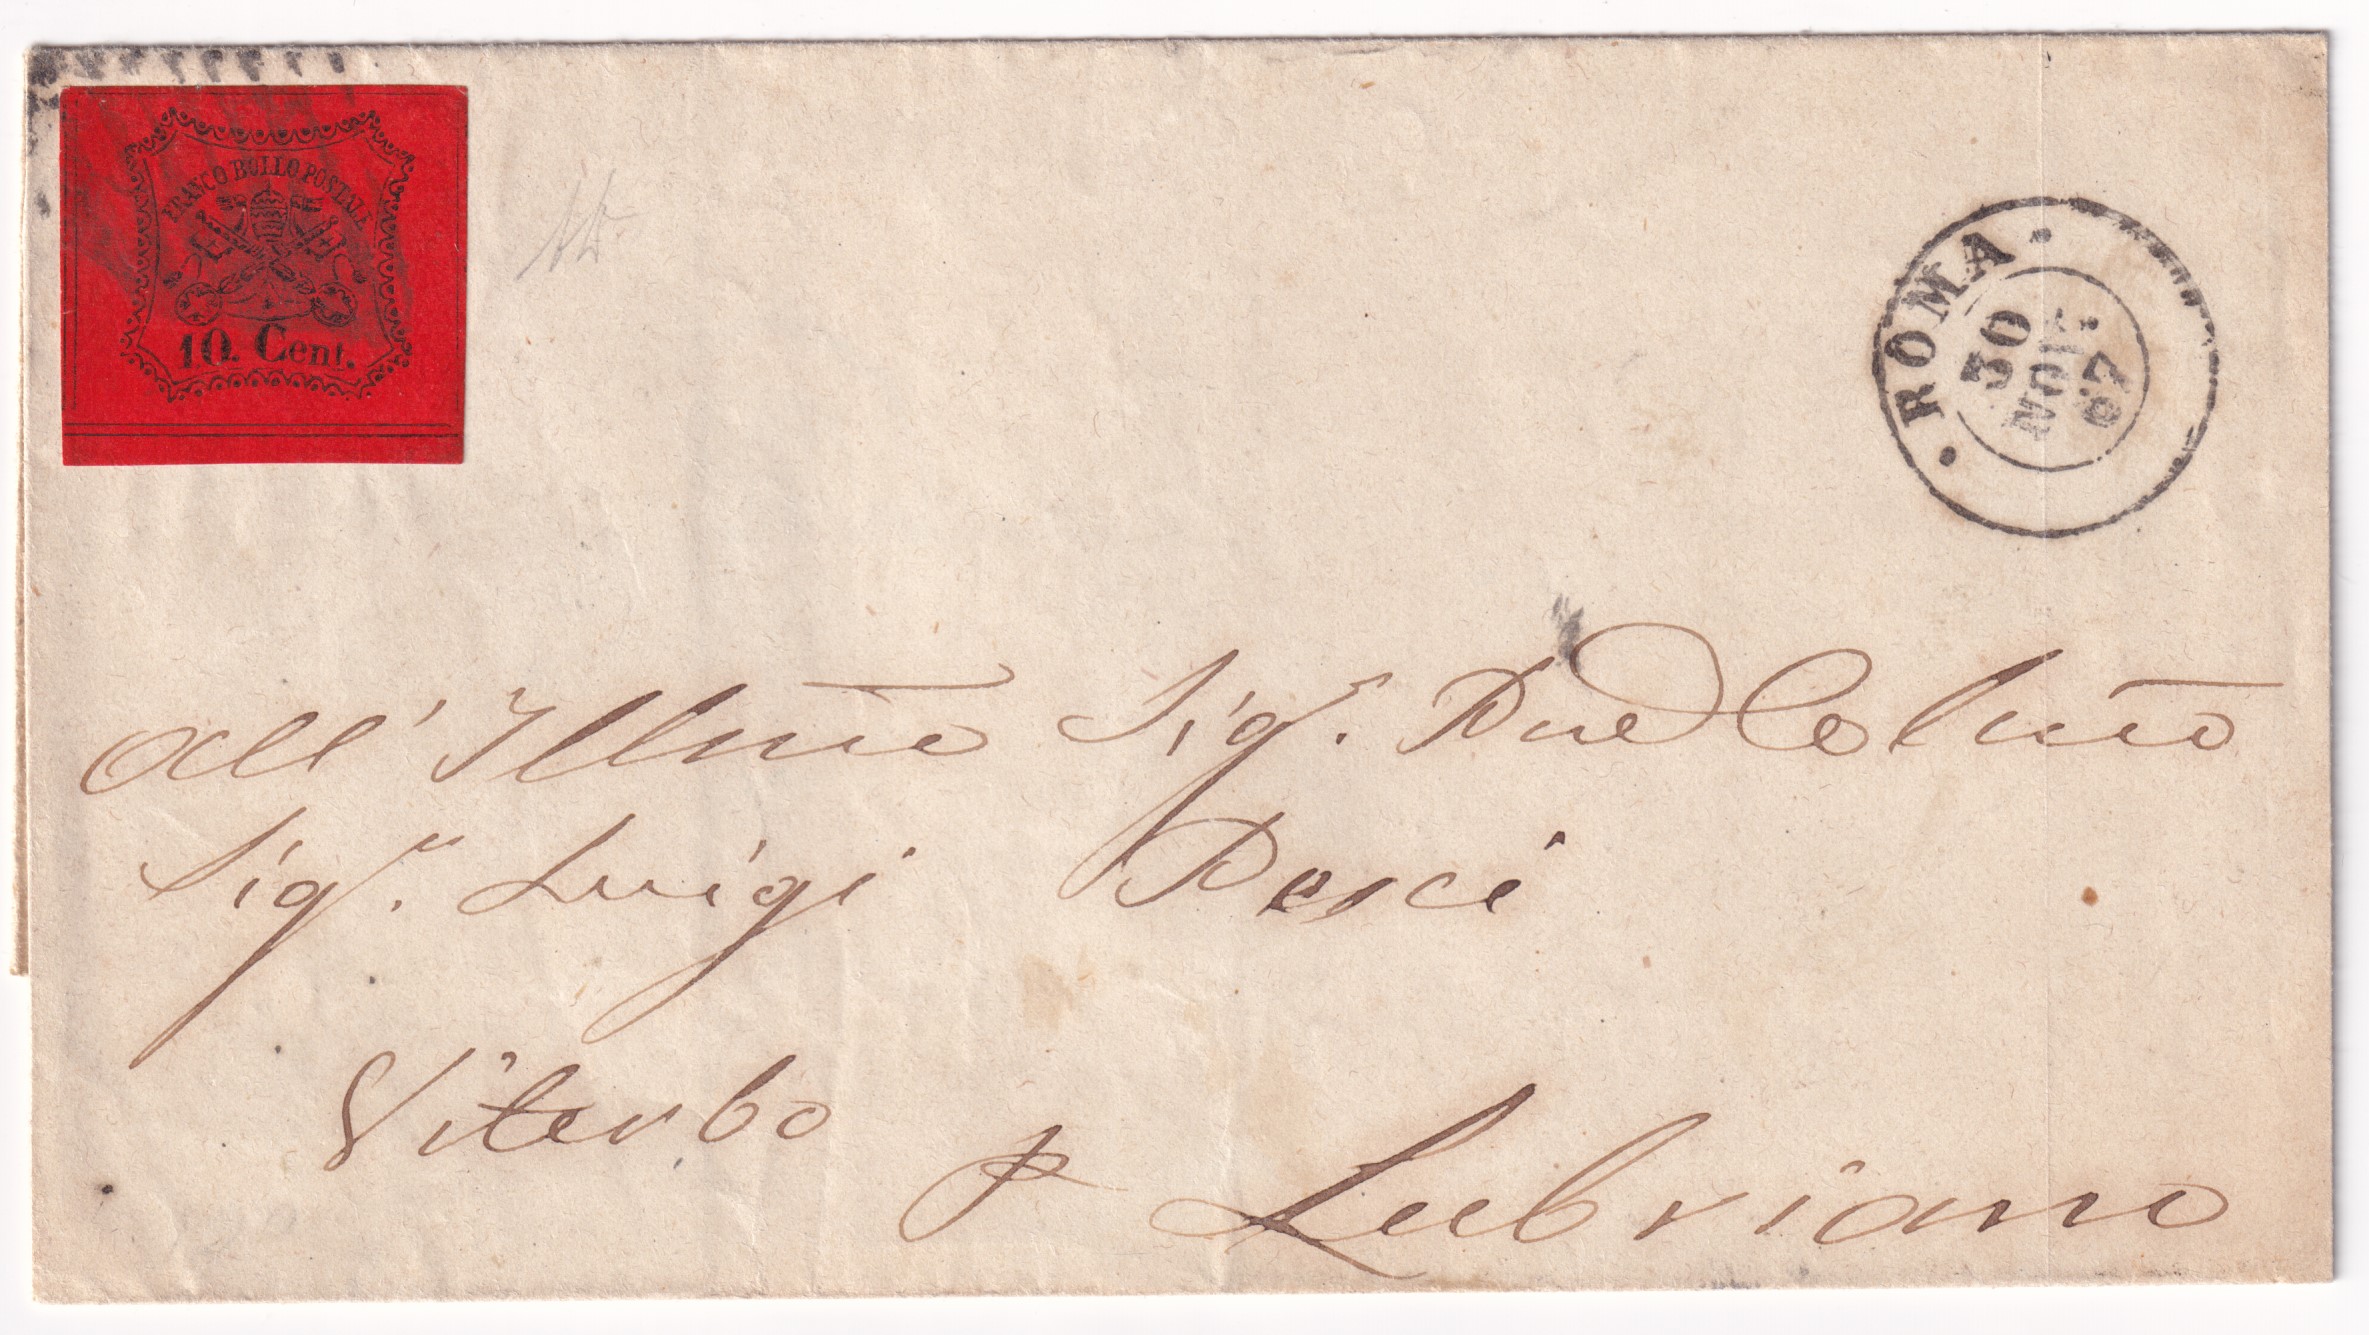 FRANCO BOLLO POSTALE
10. Cent.
ROMA
30
NOV.
67
All' Illmo Sigr. Pne Colmo
Sigr. Luigi Pesci
Viterbo
p Lubriano